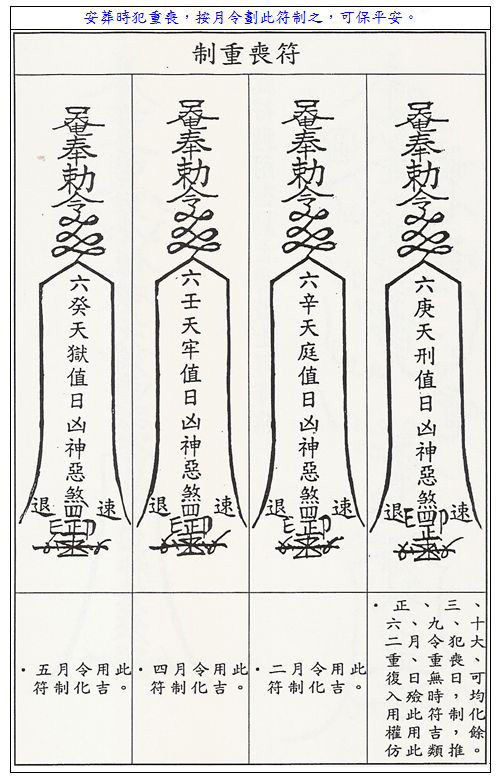 安葬時犯重喪，按月令劃此符制之，可保平安。
制重喪符
奉勅令
六癸天獄值日凶神惡煞
退 速
奉勅令
六壬天牢值日凶神惡煞
退 速
奉勅令
六辛天庭值日凶神惡煞
退 速
奉勅令
六庚天刑值日凶神惡煞
退 速
·五月令用此
符制化吉。
·四月令用此
符制化吉。
·二月令用此
符制化吉。
·正、三、
六、九、十
二月令犯大
重、重喪、
復日無日可
入殮時，均
用此符制化
權用吉，餘
仿此類推。